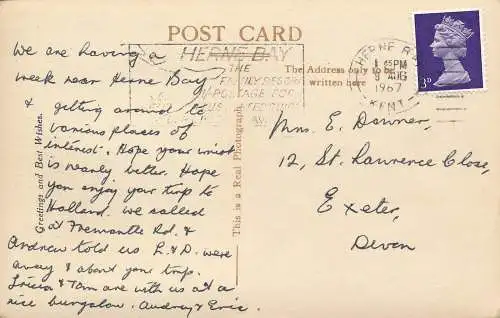 POST CARD
Greetings and Best Wishes.
This is a Real Photograph.
The Address only to be
written here
HERNE BAY
THE
HERNE BAY
PM
AUG
1967
KENT
3D
We are having a
week near Herne Bay
& getting around to
various places of
interest. Hope your wrist
is nearly better. Hope
you enjoy your trip to
Holland. We called
at Fremantle Rd. &
Andrew told us R. & D. were
away & about your trip.
& Tom are with us at a
nice bungalow. Audrey & Eric.
Mrs. E. Downer,
12, St. Lawrence Close,
Exeter,
Devon